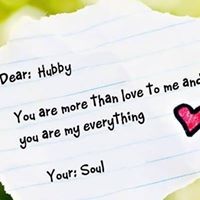 Dear: Hubby
You are more than love to me and
you are my everything
Your: Soul